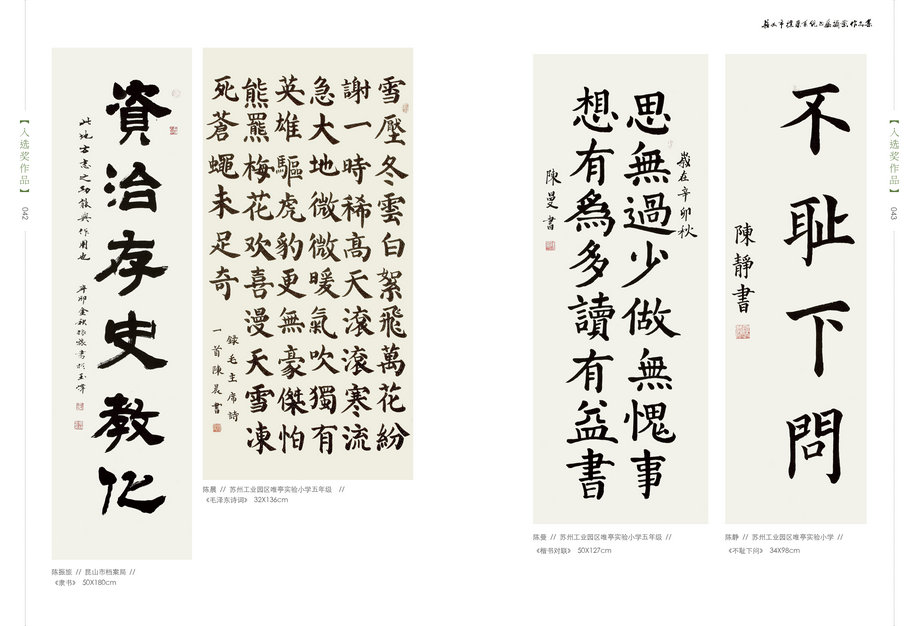 【入选奖作品】
042
資治存史教化
此地方志之功能與作用也
辛卯金秋振旅書於玉峰
陈振旅 // 昆山市档案局 //
《隶书》 50X180cm
雪壓冬雲白絮飛萬花紛
謝一時稀高天滾滾寒流
急大地微微暖氣吹獨有
英雄驅虎豹更無豪傑怕
熊羆梅花欢喜漫天雪凍
死蒼蠅未足奇
録毛主席詩
一首陳晨書
陈晨 // 苏州工业园区唯亭实验小学五年级 //
《毛泽东诗词》 32X136cm
思無過少做無愧事
歲在辛卯秋
想有為多讀有益書
陳曼書
陈曼 // 苏州工业园区唯亭实验小学五年级 //
《楷书对联》 50X127cm
不耻下問
陳靜書
陈静 // 苏州工业园区唯亭实验小学 //
《不耻下问》 34X98cm
【入选奖作品】
043